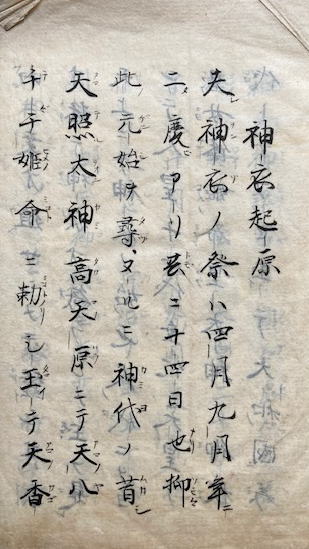 神衣起原
夫神衣ノ祭ハ四月九月年ニ
二度アリ共ニ十四日也抑
此元始ヲ尋ヌルニ神代ノ昔シ
天照太神高天原ニテ天八
千千姫命ニ勅し玉テ天香